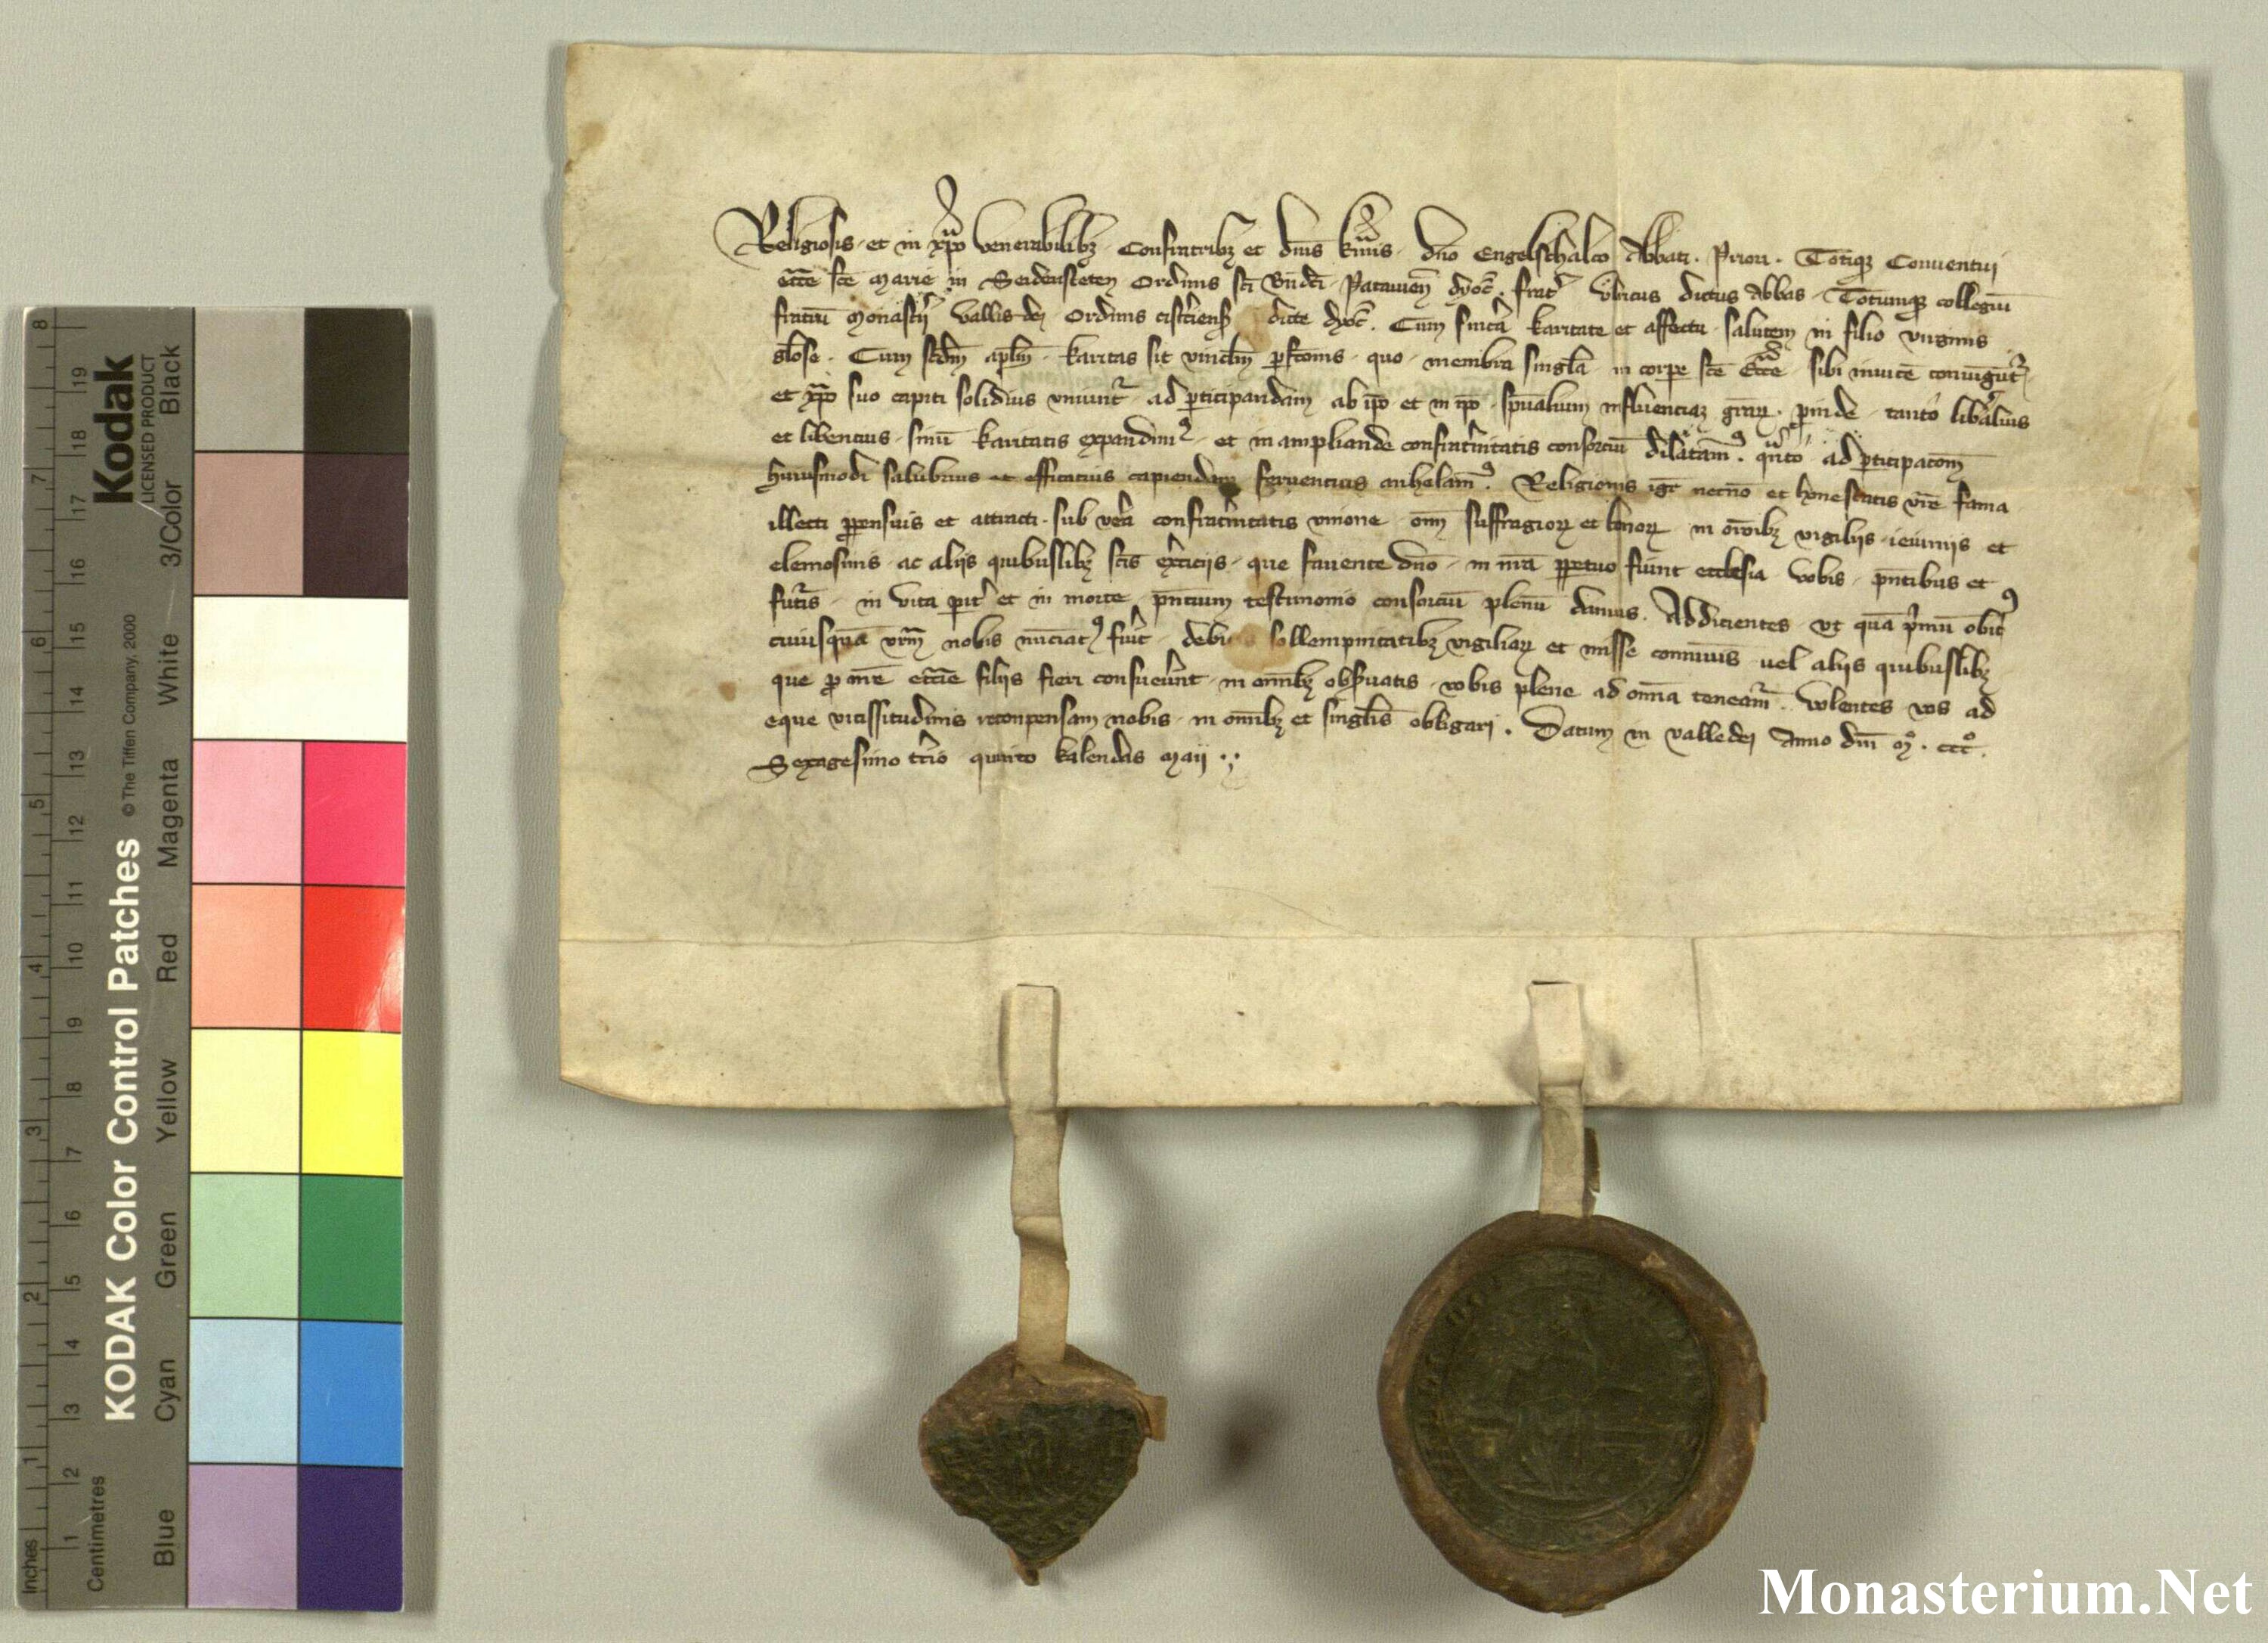 Religiosis et in xp̄o venerabilibꝫ Confratribꝫ et dn̄is kr̄mis dn̄o Engelschalco Abbati. Priori. Totiqꝫ Conuentuj
eccē scē Marie in Seidensteten Ordinis scī Bn̄dcī Patauien̄ dyoc̄. frat̄ Vlricus dictus Abbas Totumqꝫ collegiū
fratrū Monast̄ij Vallis dej Ordinis cist̄ciens̄ dicte dyoc̄. Cum sincͤa karitate et affectu salutem in filio virginis
gl̄ose. Cum scd̄m apl̄m karitas sit vincl̄m ꝑfcōnis quo membra singl̄a in corpͤe scē Eccē sibi inuicē coniūgūtͬ
et xp̄o suo capiti solidius vniunt̄ ad ꝑticipandam ab ip̄o et in ip̄o sp̄ualium influenciaꝫ gr̄aꝝ. ꝓinde tanto libͤalius
et libencius sinū karitatis expandimꝰ et in ampliande confrat̄nitatis consorciū dilatamꝰ. qᵃnto ad ꝑticipacōem
huiusmodi salubrius et efficacius capiendam feruencius anhelamꝰ. Religionis igͬ necn̄o et honestatis vr̄e fama
illecti ꝓpensius et attracti sub vͤa confrat̄nitatis vnione om̄ suffragioꝝ et bonoꝝ in or̄oibꝫ vigilijs ieiunijs et
elemosinis ac alijs quibuslibꝫ scīs exͤcicijs que fauente dn̄o in nr̄a ꝑpetuo fiunt ecclesia vobis pn̄tibus et
futͥs in vita ꝑitͤ et in morte pn̄cium testimonio consorciū plenū damus. Addicientes vt quā pͥmū obitꝰ
cuiusqᵃ vr̄m nobis nūciatꝰ fuͤit debi sollempnitatibꝫ vigiliaꝝ et misse conmunis uel alijs quibuslibꝫ
que ꝓ nr̄e eccīe filijs fieri consueuͤnt in om̄ibꝫ obs̄uatis vobis plene ad om̄ia teneamͬ. volentes vos ad
eque vicissitudinis reconpensam nobis in om̄ibꝫ et singl̄is obligari. Datum in valle dej Anno dn̄i Mͦ. cccͦ.
Sexagesimo tͤcio quinto kalendas Maij
KODAK Color Control Patches
© The Tiffen Company, 2000
Kodak
LICENSED PRODUCT
Inches
1 2 3 4 5 6 7 8
Centimetres
1 2 3 4 5 6 7 8 9 10 11 12 13 14 15 16 18 19
Blue Cyan Green Yellow Red Magenta White 3/Color Black
Monasterium.Net